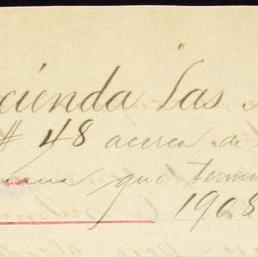 cienda "Las
# 48 acerca de
que termi
1908